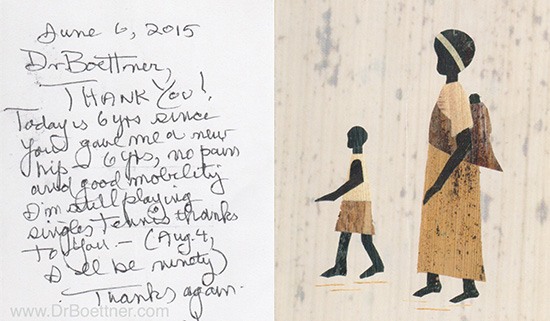 June 6, 2015
Dr Boettner,
THANK YOU!
Today is 6 yrs since
you gave me a new
hip. 6 yrs, no pain
and good mobility
I'm still playing
singles tennis thanks
to you — (Aug. 4,
I'll be ninety)
Thanks again.
www.DrBoettner.com